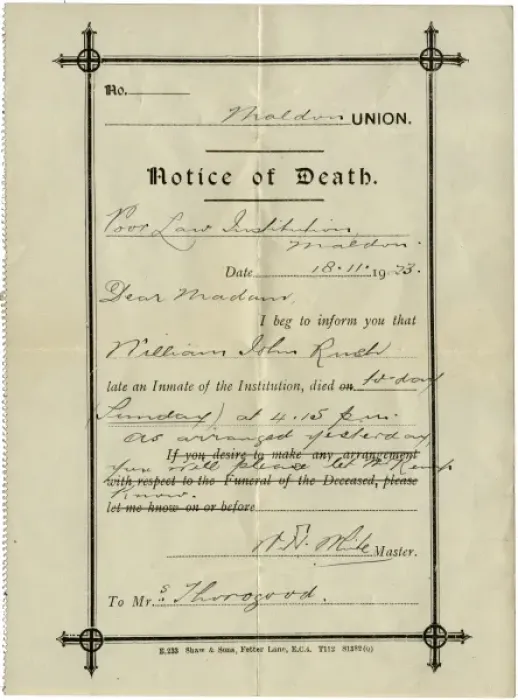 No.
Maldon UNION.
Notice of Death.
Poor Law Institution,
Maldon.
Date 18.11.1923.
Dear Madam,
I beg to inform you that
William John Rush
late an Inmate of the Institution, died on to-day
(Sunday) at 4.15 p.m.
as arranged yesterday
If you desire to make any arrangement
you will please let Mr
with respect to the Funeral of the Deceased, please
know.
let me know on or before
Master.
To Mrs. Thorogood.
E.233 Shaw & Sons, Fetter Lane, E.C.4.